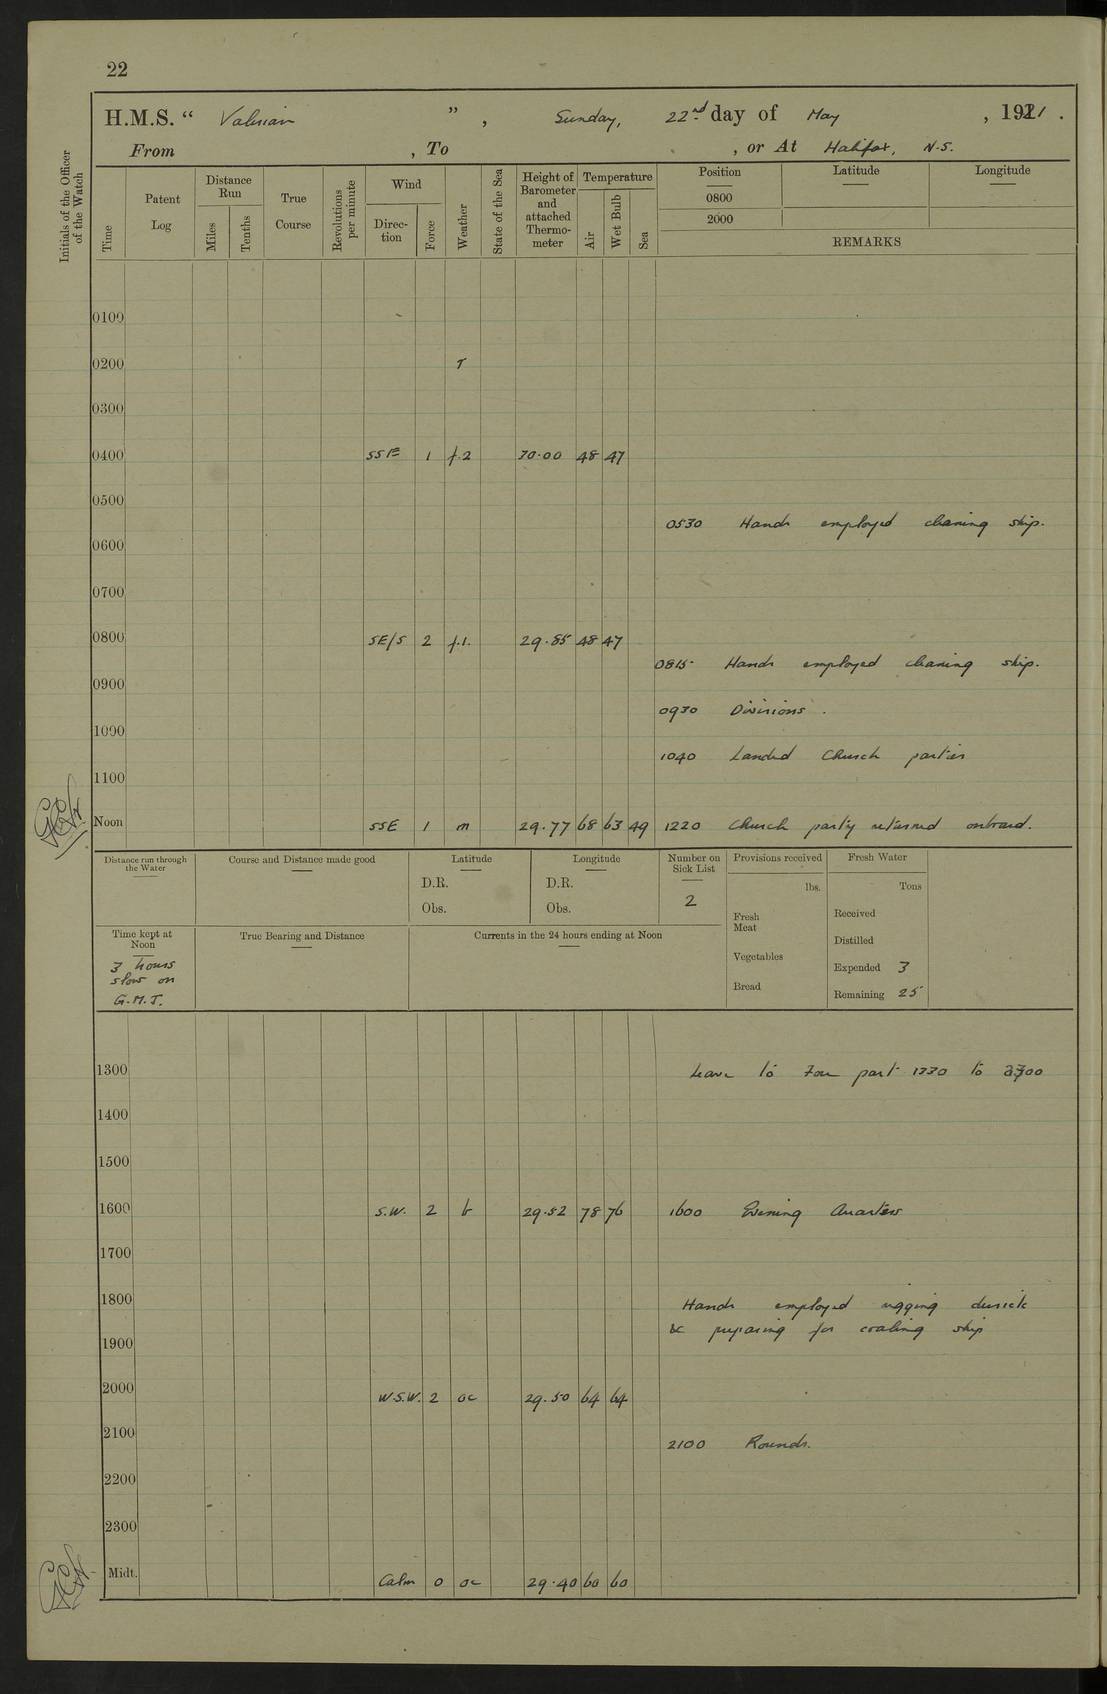 22
H.M.S. “ Valerian ” , Sunday, 22nd day of May , 1921 .
From , To , or At Halifax, N.S.
Initials of the Officer of the Watch
Time
Patent Log
Distance Run
Miles
Tenths
True Course
Revolutions per minute
Wind
Direction
Force
Weather
State of the Sea
Height of Barometer and attached Thermometer
Temperature
Air
Wet Bulb
Sea
Position Latitude Longitude
0800
2000
REMARKS
0100
0200 r
0300
0400 SSE 1 f.2 30.00 48 47
0500
0530 Hands employed cleaning ship.
0600
0700
0800 SE/S 2 f.1. 29.85 48 47
0815 Hands employed cleaning ship.
0900
0930 Divisions .
1000
1040 Landed Church parties
1100
Noon SSE 1 m 29.77 68 63 49 1220 Church party returned onboard.
Distance run through the Water
Course and Distance made good
Latitude
D.R.
Obs.
Longitude
D.R.
Obs.
Number on Sick List
2
Provisions received
lbs.
Fresh Meat
Vegetables
Bread
Fresh Water
Tons
Received
Distilled
Expended 3
Remaining 25
Time kept at Noon
3 hours
slow on
G.M.T.
True Bearing and Distance
Currents in the 24 hours ending at Noon
1300 Leave to part 1330 to
1400
1500
1600 S.W. 2 b 29.52 78 76 1600 Evening Quarters
1700
1800 Hands employed rigging derrick
&c preparing for coaling ship
1900
2000 W.S.W. 2 oc 29.50 64 64
2100
2100 Rounds.
2200
2300
Midt. Calm 0 oc 29.40 60 60